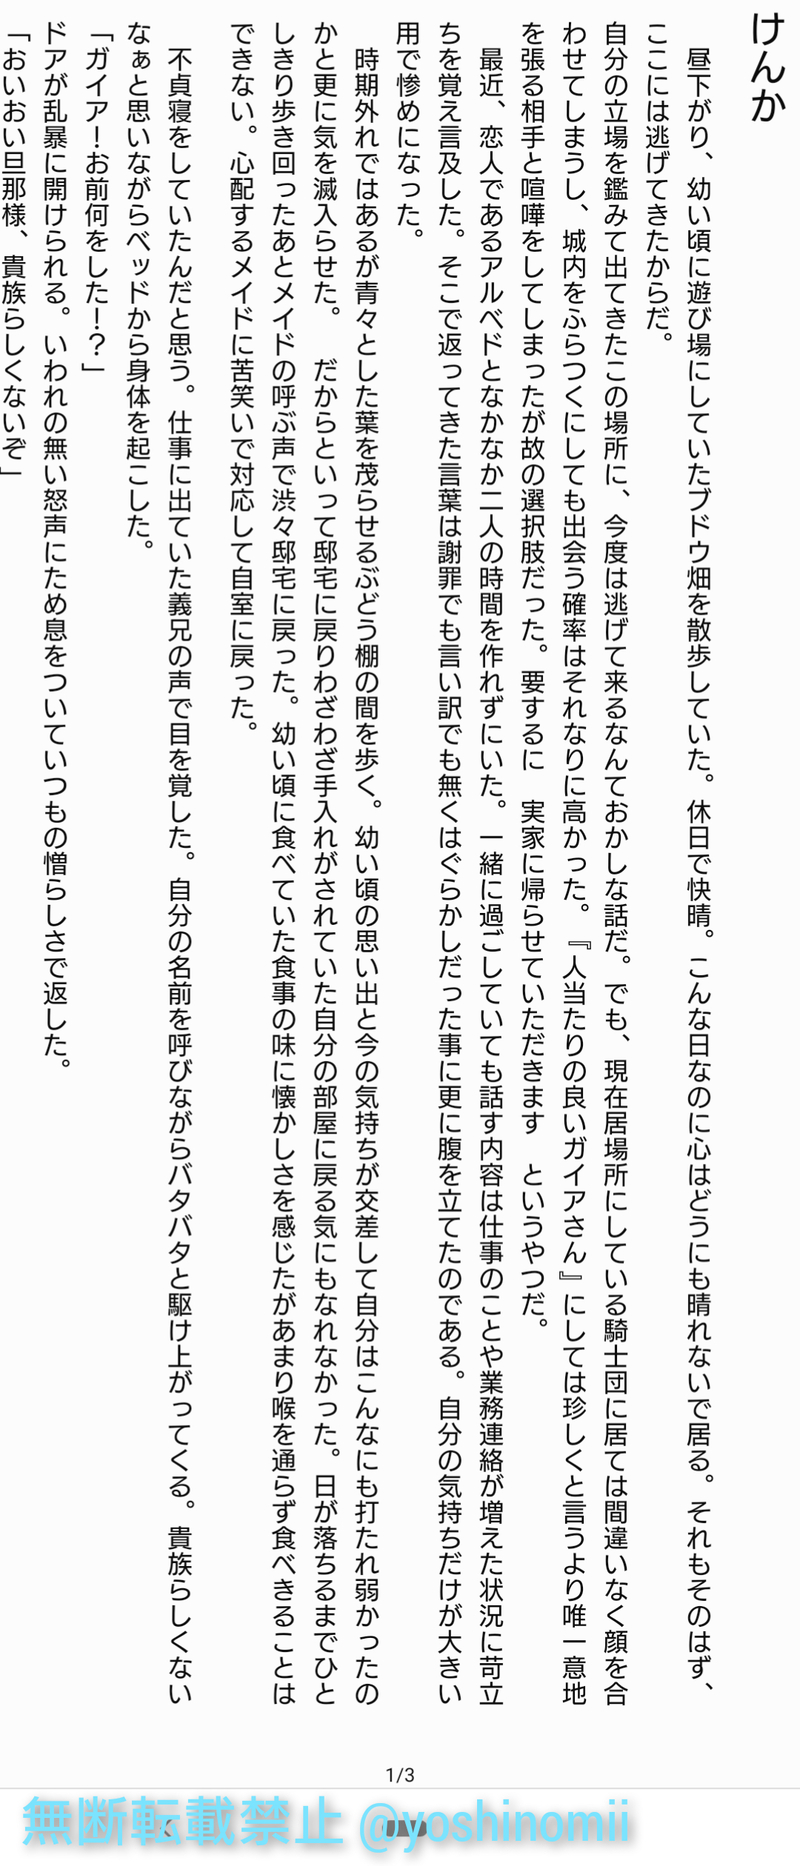 けんか
　昼下がり、幼い頃に遊び場にしていたブドウ畑を散歩していた。休日で快晴。こんな日なのに心はどうにも晴れないで居る。それもそのはず、
ここには逃げてきたからだ。
自分の立場を鑑みて出てきたこの場所に、今度は逃げて来るなんておかしな話だ。でも、現在居場所にしている騎士団に居ては間違いなく顔を合
わせてしまうし、城内をふらつくにしても出会う確率はそれなりに高かった。『人当たりの良いガイアさん』にしては珍しくと言うより唯一意地
を張る相手と喧嘩をしてしまったが故の選択肢だった。要するに　実家に帰らせていただきます　というやつだ。
　最近、恋人であるアルベドとなかなか二人の時間を作れずにいた。一緒に過ごしていても話す内容は仕事のことや業務連絡が増えた状況に苛立
ちを覚え言及した。そこで返ってきた言葉は謝罪でも言い訳でも無くはぐらかしだった事に更に腹を立てたのである。自分の気持ちだけが大きい
用で惨めになった。
　時期外れではあるが青々とした葉を茂らせるぶどう棚の間を歩く。幼い頃の思い出と今の気持ちが交差して自分はこんなにも打たれ弱かったの
かと更に気を滅入らせた。　だからといって邸宅に戻りわざわざ手入れがされていた自分の部屋に戻る気にもなれなかった。日が落ちるまでひと
しきり歩き回ったあとメイドの呼ぶ声で渋々邸宅に戻った。幼い頃に食べていた食事の味に懐かしさを感じたがあまり喉を通らず食べきることは
できない。心配するメイドに苦笑いで対応して自室に戻った。
　不貞寝をしていたんだと思う。仕事に出ていた義兄の声で目を覚した。自分の名前を呼びながらバタバタと駆け上がってくる。貴族らしくない
なぁと思いながらベッドから身体を起こした。
「ガイア！お前何をした！？」
ドアが乱暴に開けられる。いわれの無い怒声にため息をついていつもの憎らしさで返した。
「おいおい旦那様、貴族らしくないぞ」
1/3
無断転載禁止 @yoshinomii